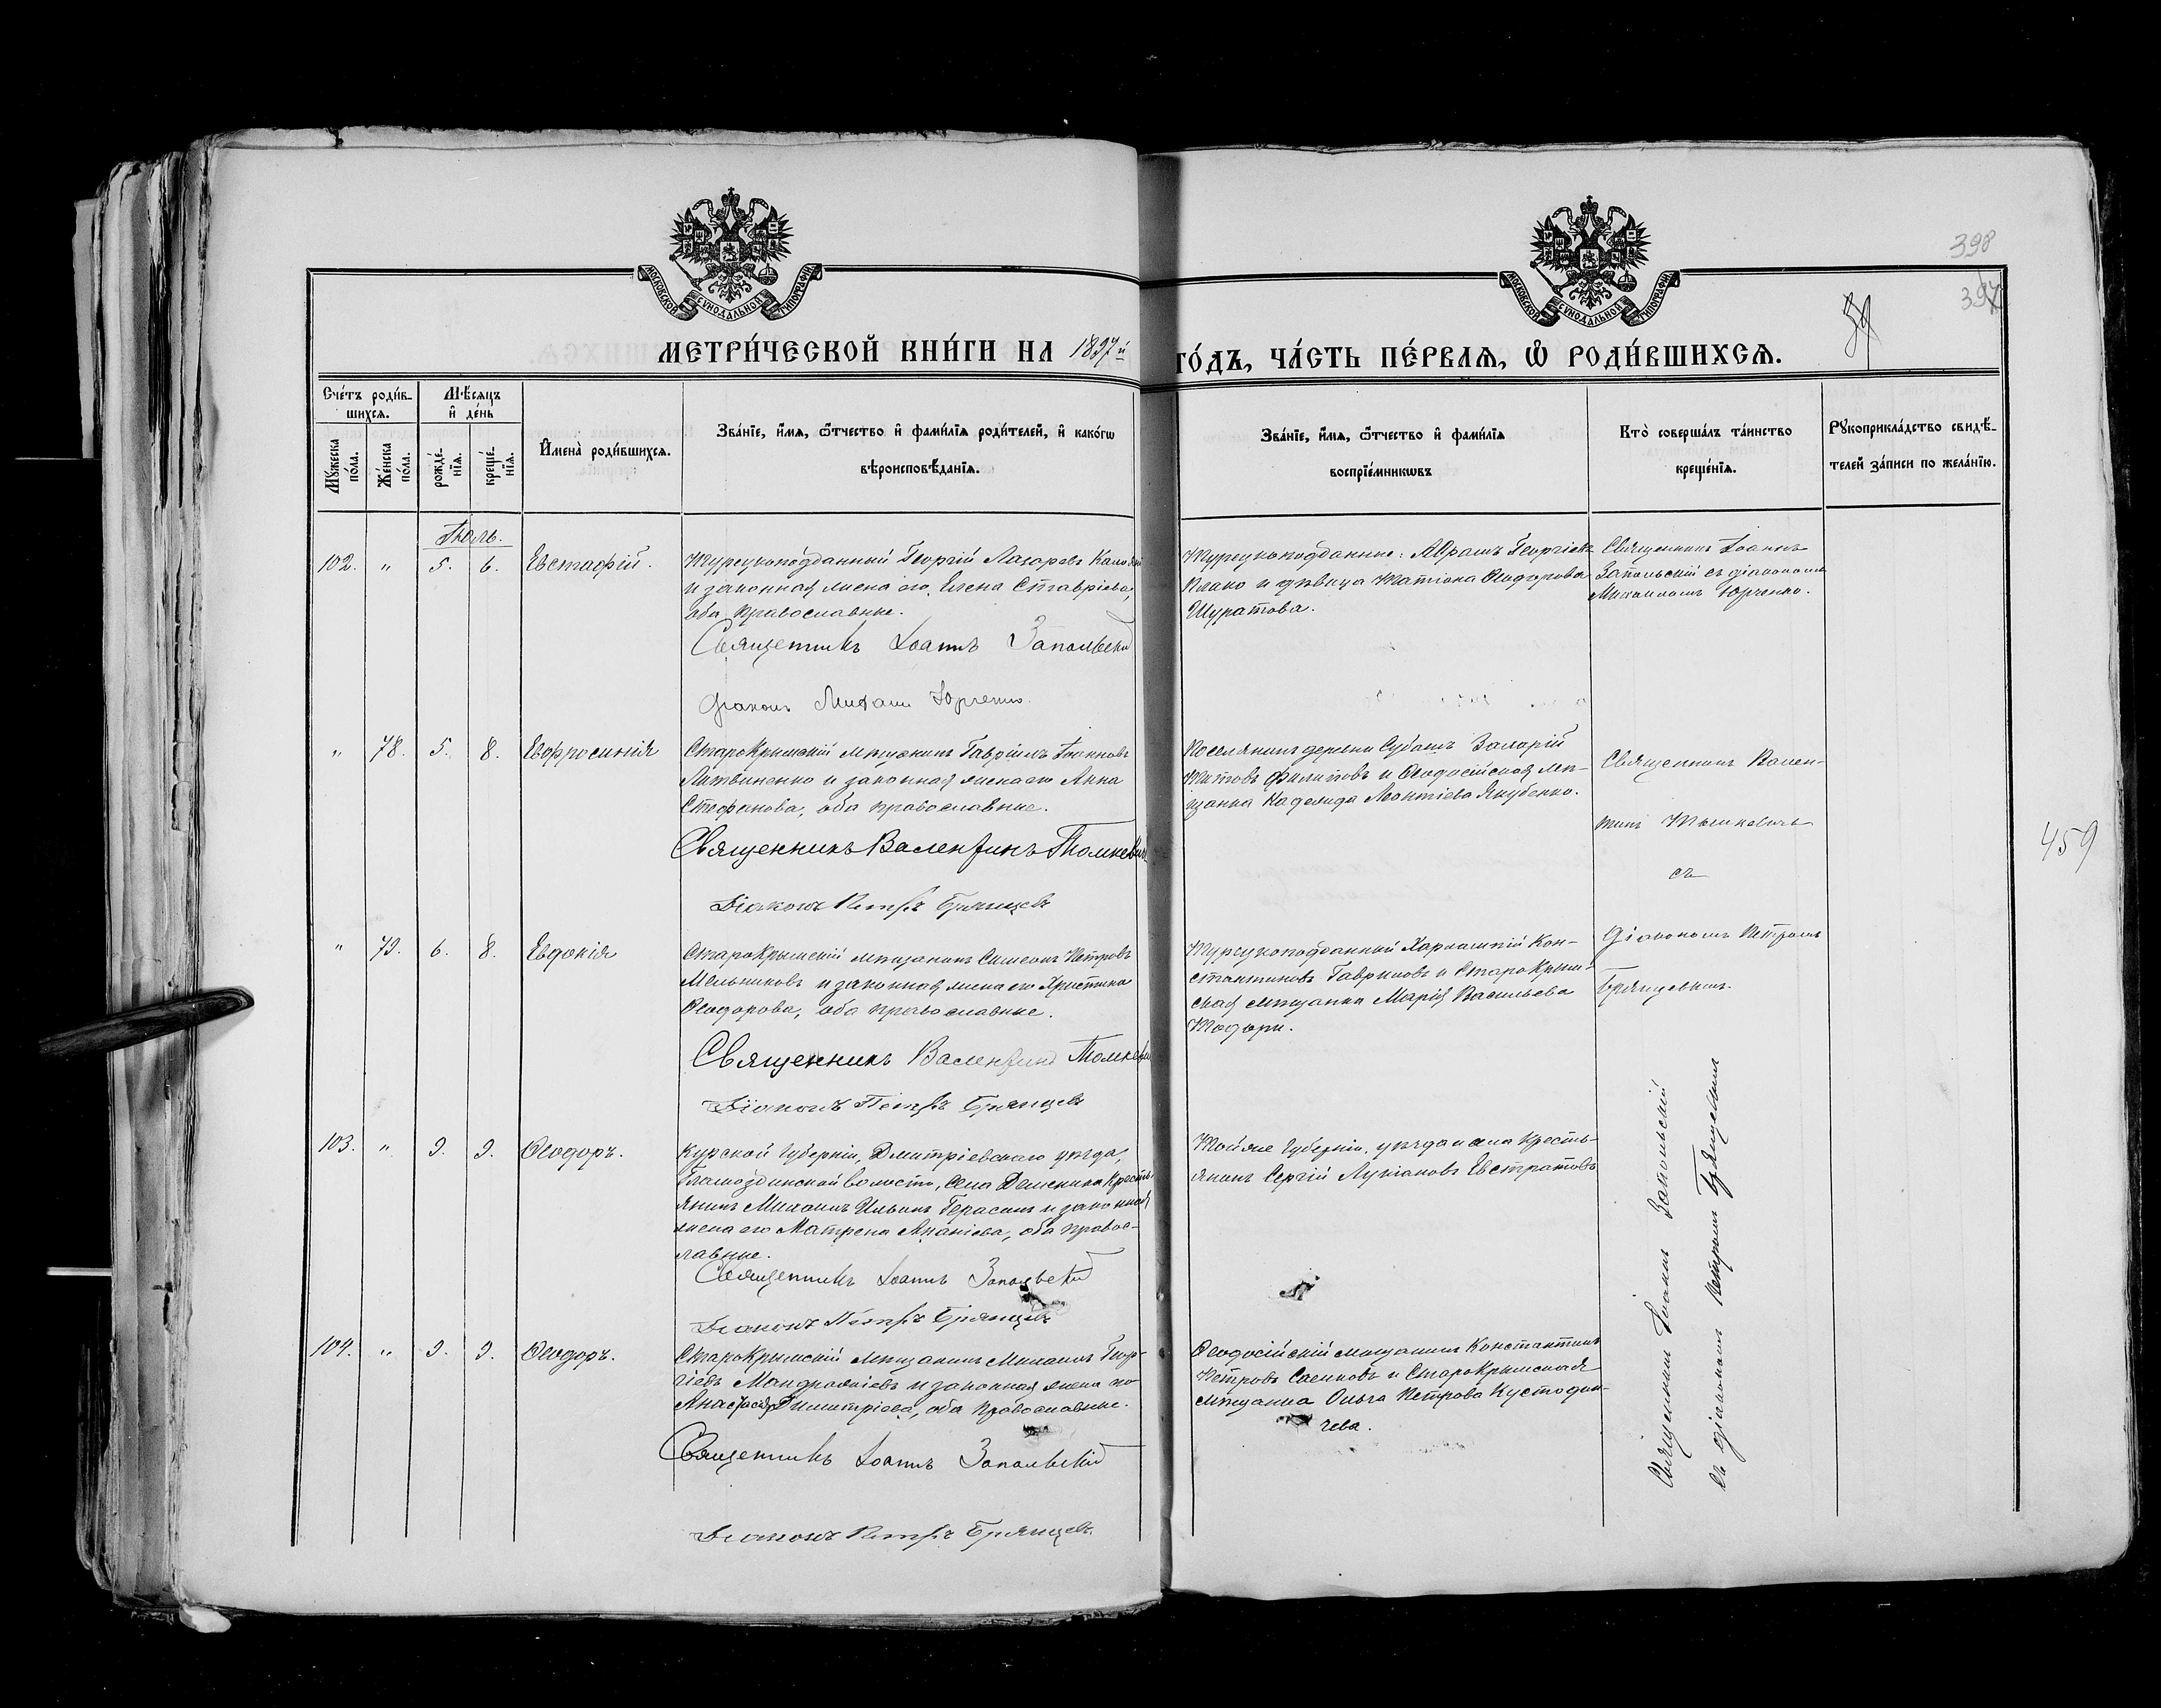 МОСКОВСКОЙ СѴНОДАЛЬНОЙ ТИПОГРАФІИ
МОСКОВСКОЙ СѴНОДАЛЬНОЙ ТИПОГРАФІИ
398
397
МЕТРИ́ЧЕСКОЙ КНИ́ГИ НА 1897й ГО́ДЪ, ЧА́СТЬ ПЕ́РВАѦ, Ѡ҆ РОДИ́ВШИХСѦ.
Сче́тъ роди́в-
шихсѧ.
Мꙋ́жеска
по́ла.
Же́нска
по́ла.
Мѣ́сѧцъ
и҆ де́нь
рожде́-
нїѧ.
креще́-
нїѧ.
И҆мена̀ роди́вшихсѧ.
Зва́нїе, и҆́мѧ, ѻ҆́тчество и҆ фами́лїѧ роди́телей, и҆ како́гѡ
вѣроисповѣ́данїѧ.
Зва́нїе, и҆́мѧ, ѻ҆́тчество и҆ фами́лїѧ
воспрїе́мникѡвъ
Кто̀ соверша́лъ та́инство
креще́нїѧ.
Рꙋкоприкла́дство свидѣ́-
телей за́писи по жела́нїю.
Іюль.
102. " 5. 6. Евстафій.
Турецкоподданный Георгій Лазаревъ
и законная жена его Елена Ставріева,
оба православные.
Священникъ Іоаннъ Запольскій
Діаконъ Михаилъ Юрченко
Турецкоподданные: Аѳрамъ Георгіевъ
и дѣвица Ѳеодорова
Шуратова.
Священникъ Іоаннъ
Запольскій съ діакономъ
Михаиломъ Юрченко.
" 78. 5. 8. Евфросинія
Старокрымскій мѣщанинъ Гавріилъ Іоанновъ
Литвиненко и законная жена его Анна
Стефанова, оба православные.
Священникъ Валентинъ
Діаконъ Петръ Брянцевъ
Поселянинъ деревни Субашъ Захарій
Титовъ Филиповъ и Ѳеодосійская мѣ-
щанка Надежда Леонтіева Якубенко.
Священникъ Вален-
тинъ
съ
діакономъ Петромъ
Брянцевымъ.
459
" 79. 6. 8. Евдокія
Старокрымскій мѣщанинъ Симеонъ Петровъ
Мельниковъ и законная жена его Христина
Ѳеодорова, оба православные.
Священникъ Валентинъ
Діаконъ Петръ Брянцевъ
Турецкоподданный Харлампій Кон-
стантиновъ Гавриловъ и Старокрым-
ская мѣщанка Марія Васильева
Тодори.
103. " 9. 9. Ѳеодоръ.
Курской Губерніи, Дмитріевскаго уѣзда,
волости, села Деменина кресть-
янинъ Михаилъ Ильинъ Герасимъ и законная
жена его Матрена Ананіева, оба правос-
лавные.
Священникъ Іоаннъ Запольскій
Діаконъ Петръ Брянцевъ
Той же Губерніи, уѣзда и села кресть-
янинъ Сергій Лукіановъ Евстратовъ
104. " 9. 9. Ѳеодоръ.
Старокрымскій мѣщанинъ Михаилъ Геор-
гіевъ и законная жена его
Анастасія Димитріева, оба православные.
Священникъ Іоаннъ Запольскій
Діаконъ Петръ Брянцевъ.
Ѳеодосійскій мѣщанинъ Константинъ
Петровъ и Старокрымская
мѣщанка Ольга Петрова Кустоди-
чева.
Священникъ Іоаннъ Запольскій
съ діакономъ Петромъ Брянцевымъ